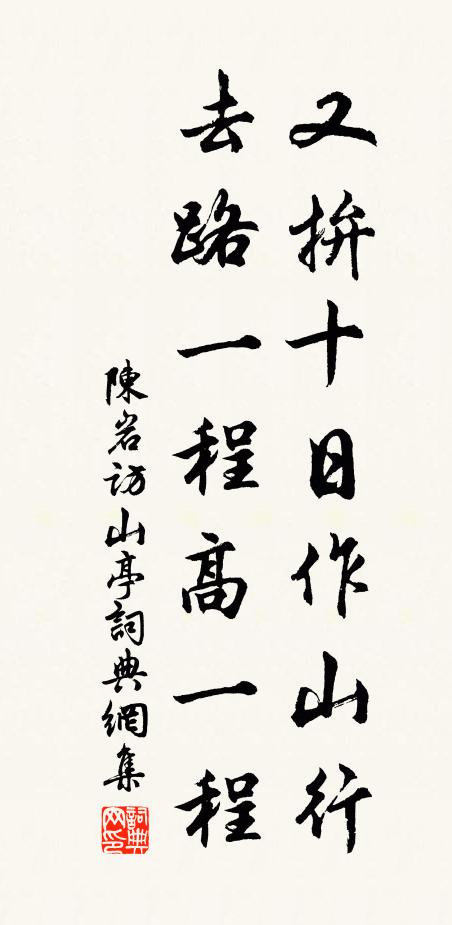 又拚十日作山行
去路一程高一程
陳岩訪山亭詞典網集
詞典网印